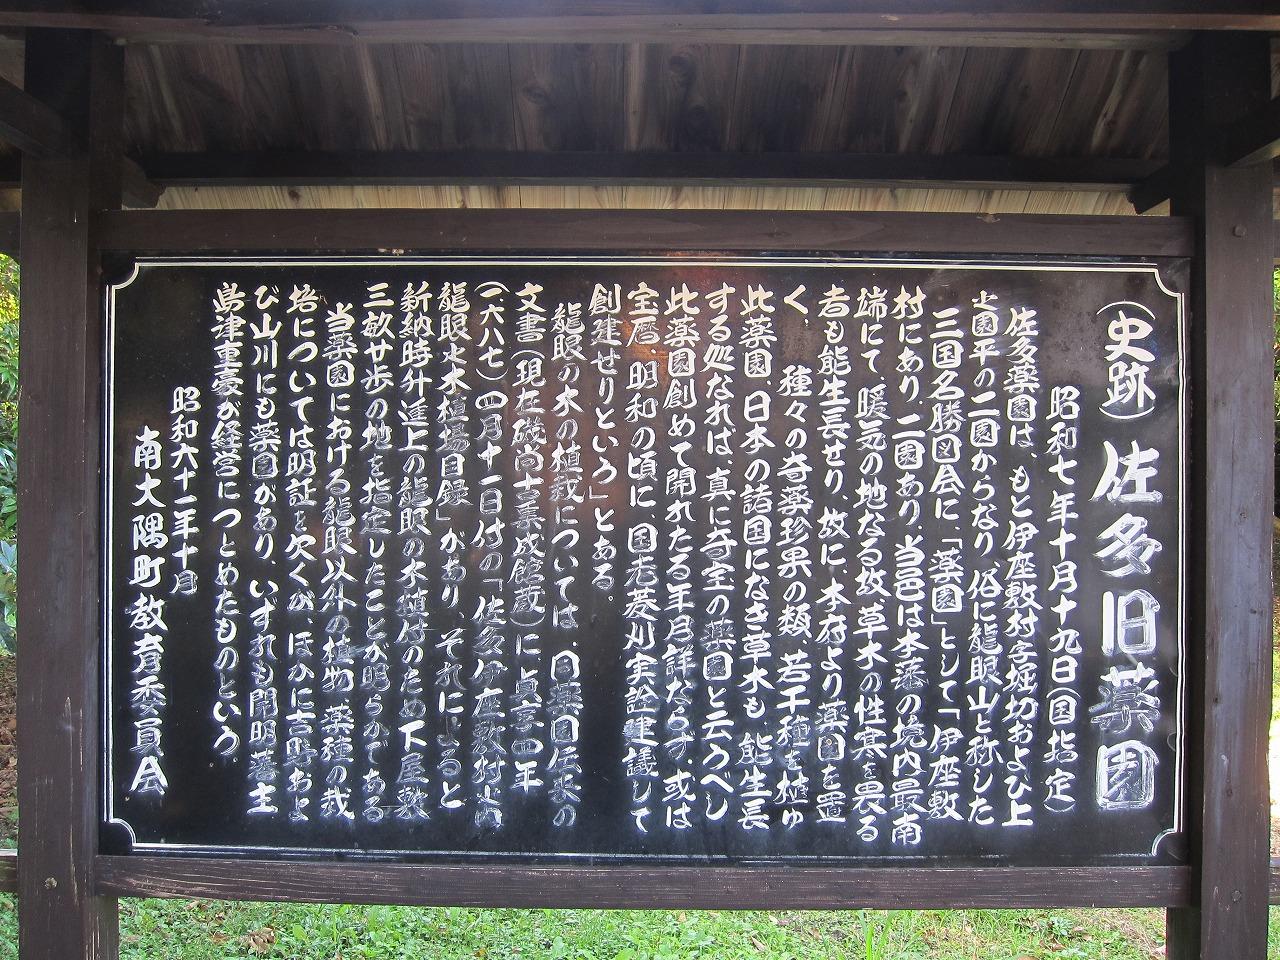 （史跡）佐多旧薬園
昭和七年十月十九日（国指定）
佐多薬園は、もと伊座敷村字堀切および上
小園平の二園からなり、俗に龍眼山と称した
三国名勝図会に、「薬園」として「伊座敷
村にあり、二園あり、当邑は本藩の境内最南
端にて、暖気の地なる故草木の性寒を畏る
者も能生長せり、故に、本府より薬園を置
く　種々の奇薬珍果の類　若干種を植ゆ
此薬園、日本の諸国になき草木も、能生長
する処なれは、真に奇宝の薬園と云うべし
此薬園創めて開れたる年月詳だらず、或は
宝暦、明和の頃に、国老菱刈実詮建議して
創建せりという」とある。
龍眼の木の植栽については、同薬園伝来の
文書（現在磯尚古集成館蔵）に、貞享四年
（一六八七）四月十一日付の「佐多伊座敷村之内
龍眼之木植場目録」があり、それによると
新納時升進上の龍眼の木植付のため下屋敷
三畝廿歩の地を指定したことが明らかである
当薬園における龍眼以外の植物　薬種の栽
培については明証を欠くが、ほかに吉野およ
び山川にも薬園があり、いずれも開明藩主
島津重豪が経営につとめたものという。
昭和六十一年十月
南大隅町教育委員会